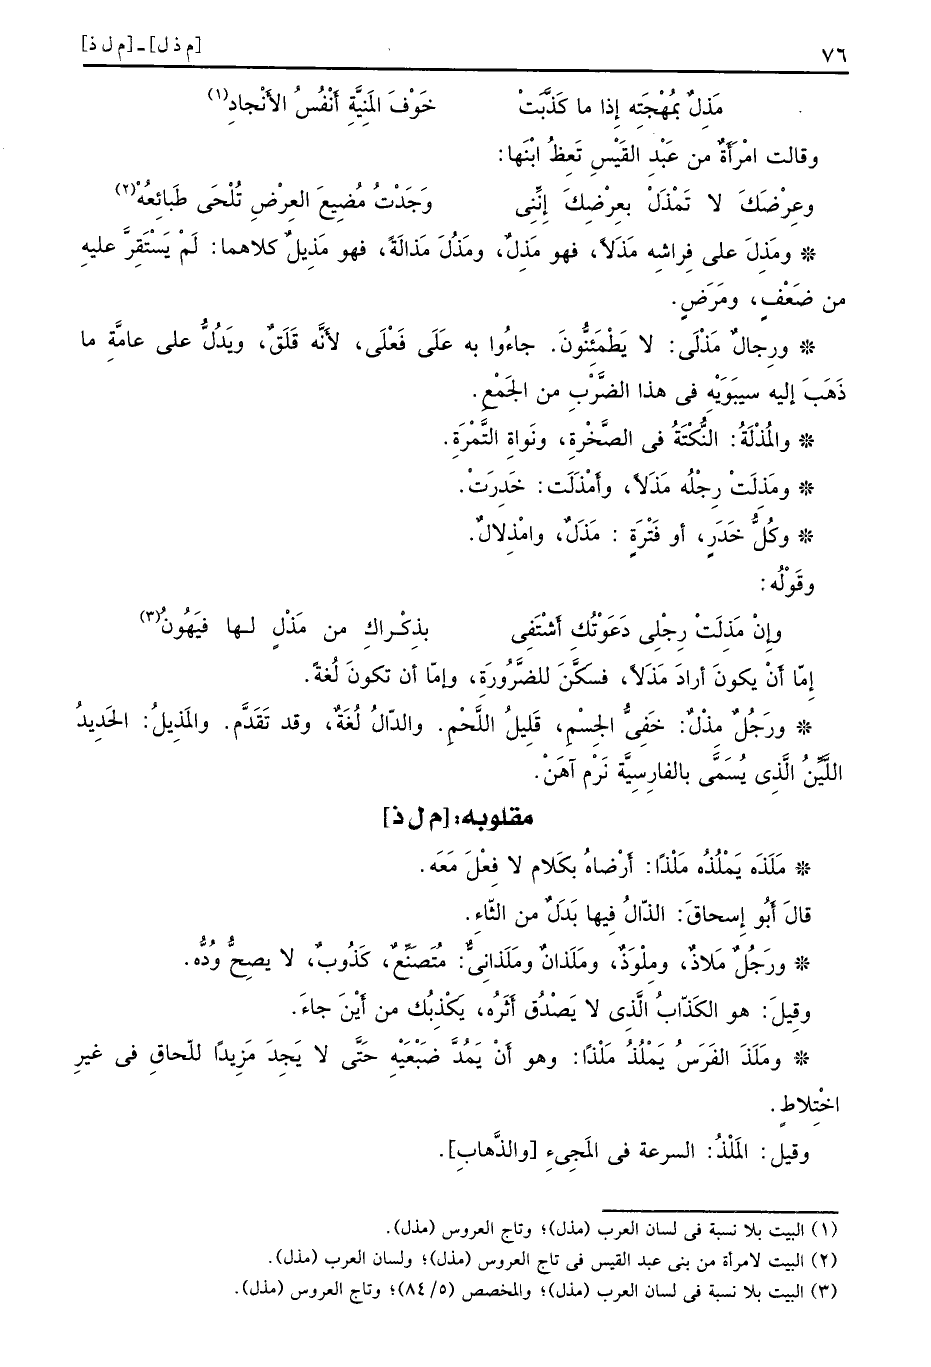 ٧٦
[م ذ ل] ـ [م ل ذ]
مَذِلٌ بمُهْجَتِه إذا ما كَذَّبَتْ خَوْفَ المَنِيَّةِ أَنْفُسُ الأَنْجادِ(١)
وقالت امْرَأَةٌ من عَبْدِ القَيْسِ تَعِظُ ابْنَها:
وعِرْضَكَ لا تَمْذُلْ بعِرْضِكَ إنَّنِى وَجَدْتُ مُضِيعَ العِرْضِ تُلْحَى طَبائِعُهْ(٢)
* ومَذِلَ على فِراشِه مَذَلاً، فهو مَذِلٌ، ومَذُلَ مَذالَةً، فهو مَذِيلٌ كلاهما: لَمْ يَسْتَقِرَّ عليه
من ضَعْفٍ، ومَرَضٍ.
* ورِجالٌ مَذْلَى: لا يَطْمَئِنُّونَ. جاءُوا به عَلَى فَعْلَى، لأنَّه قَلَقٌ، ويَدُلُّ على عامَّةِ ما
ذَهَبَ إليه سِيبَوَيْهِ فى هذا الضَّرْبِ من الجَمْعِ.
* والمُذْلَةُ: النُّكْتَةُ فى الصَّخْرةِ، ونَواةِ التَّمْرَةِ.
* ومَذِلَتْ رِجْلُه مَذَلاً، وأَمْذَلَت: خَدِرَتْ.
* وكُلُّ خَدَرٍ، أو فَتْرَةٍ : مَذَلٌ، وامْذِلالٌ.
وقَوْلُه:
وإنْ مَذِلَتْ رِجْلِى دَعَوْتُكِ أَشْتَفِى بذِكْراكِ من مَذْلٍ لها فيَهُونُ(٣)
إمّا أَنْ يكونَ أرادَ مَذَلاً، فسكَّنَ للضَّرُورَةِ، وإمّا أن تكونَ لُغةً.
* ورَجُلٌ مِذْلٌ: خَفِىُّ الجِسْمِ، قَلِيلُ اللَّحْمِ. والدّالُ لُغَةٌ، وقد تَقَدَّم. والمَذِيلُ: الحَدِيدُ
اللَّيِّنُ الَّذِى يُسَمَّى بالفارِسِيَّةِ نَرْم آهَنْ.
مقلوبه: [م ل ذ]
* مَلَذَه يَمْلُذُه مَلْذًا: أَرْضاهُ بكَلامٍ لا فِعْلَ مَعَه.
قالَ أَبُو إسحاقَ: الذّالُ فِيها بَدَلٌ من الثّاءِ.
* ورَجُلٌ مَلاذٌ، ومِلْوَذٌ، ومَلَذانٌ ومَلَذانِىٌّ: مُتَصَنِّعٌ، كَذُوبٌ، لا يصِحُّ وُدُّه.
وقِيلَ: هو الكَذّابُ الَّذى لا يَصْدُق أَثَرُه، يَكْذِبُك من أَيْنَ جاءَ.
* ومَلَذَ الفَرَسُ يَمْلُذُ مَلْذًا: وهو أَنْ يَمُدَّ ضَبْعَيْهِ حَتَّى لا يَجِدَ مَزِيدًا للّحاقِ فى غيرِ
اخْتِلاطٍ.
وقيل: المَلْذُ: السرعة فى المَجِىءِ [والذَّهابِ].
(١) البيت بلا نسبة فى لسان العرب (مذل)؛ وتاج العروس (مذل).
(٢) البيت لامرأة من بنى عبد القيس فى تاج العروس (مذل)؛ ولسان العرب (مذل).
(٣) البيت بلا نسبة فى لسان العرب (مذل)؛ والمخصص (٥/ ٨٤)؛ وتاج العروس (مذل).